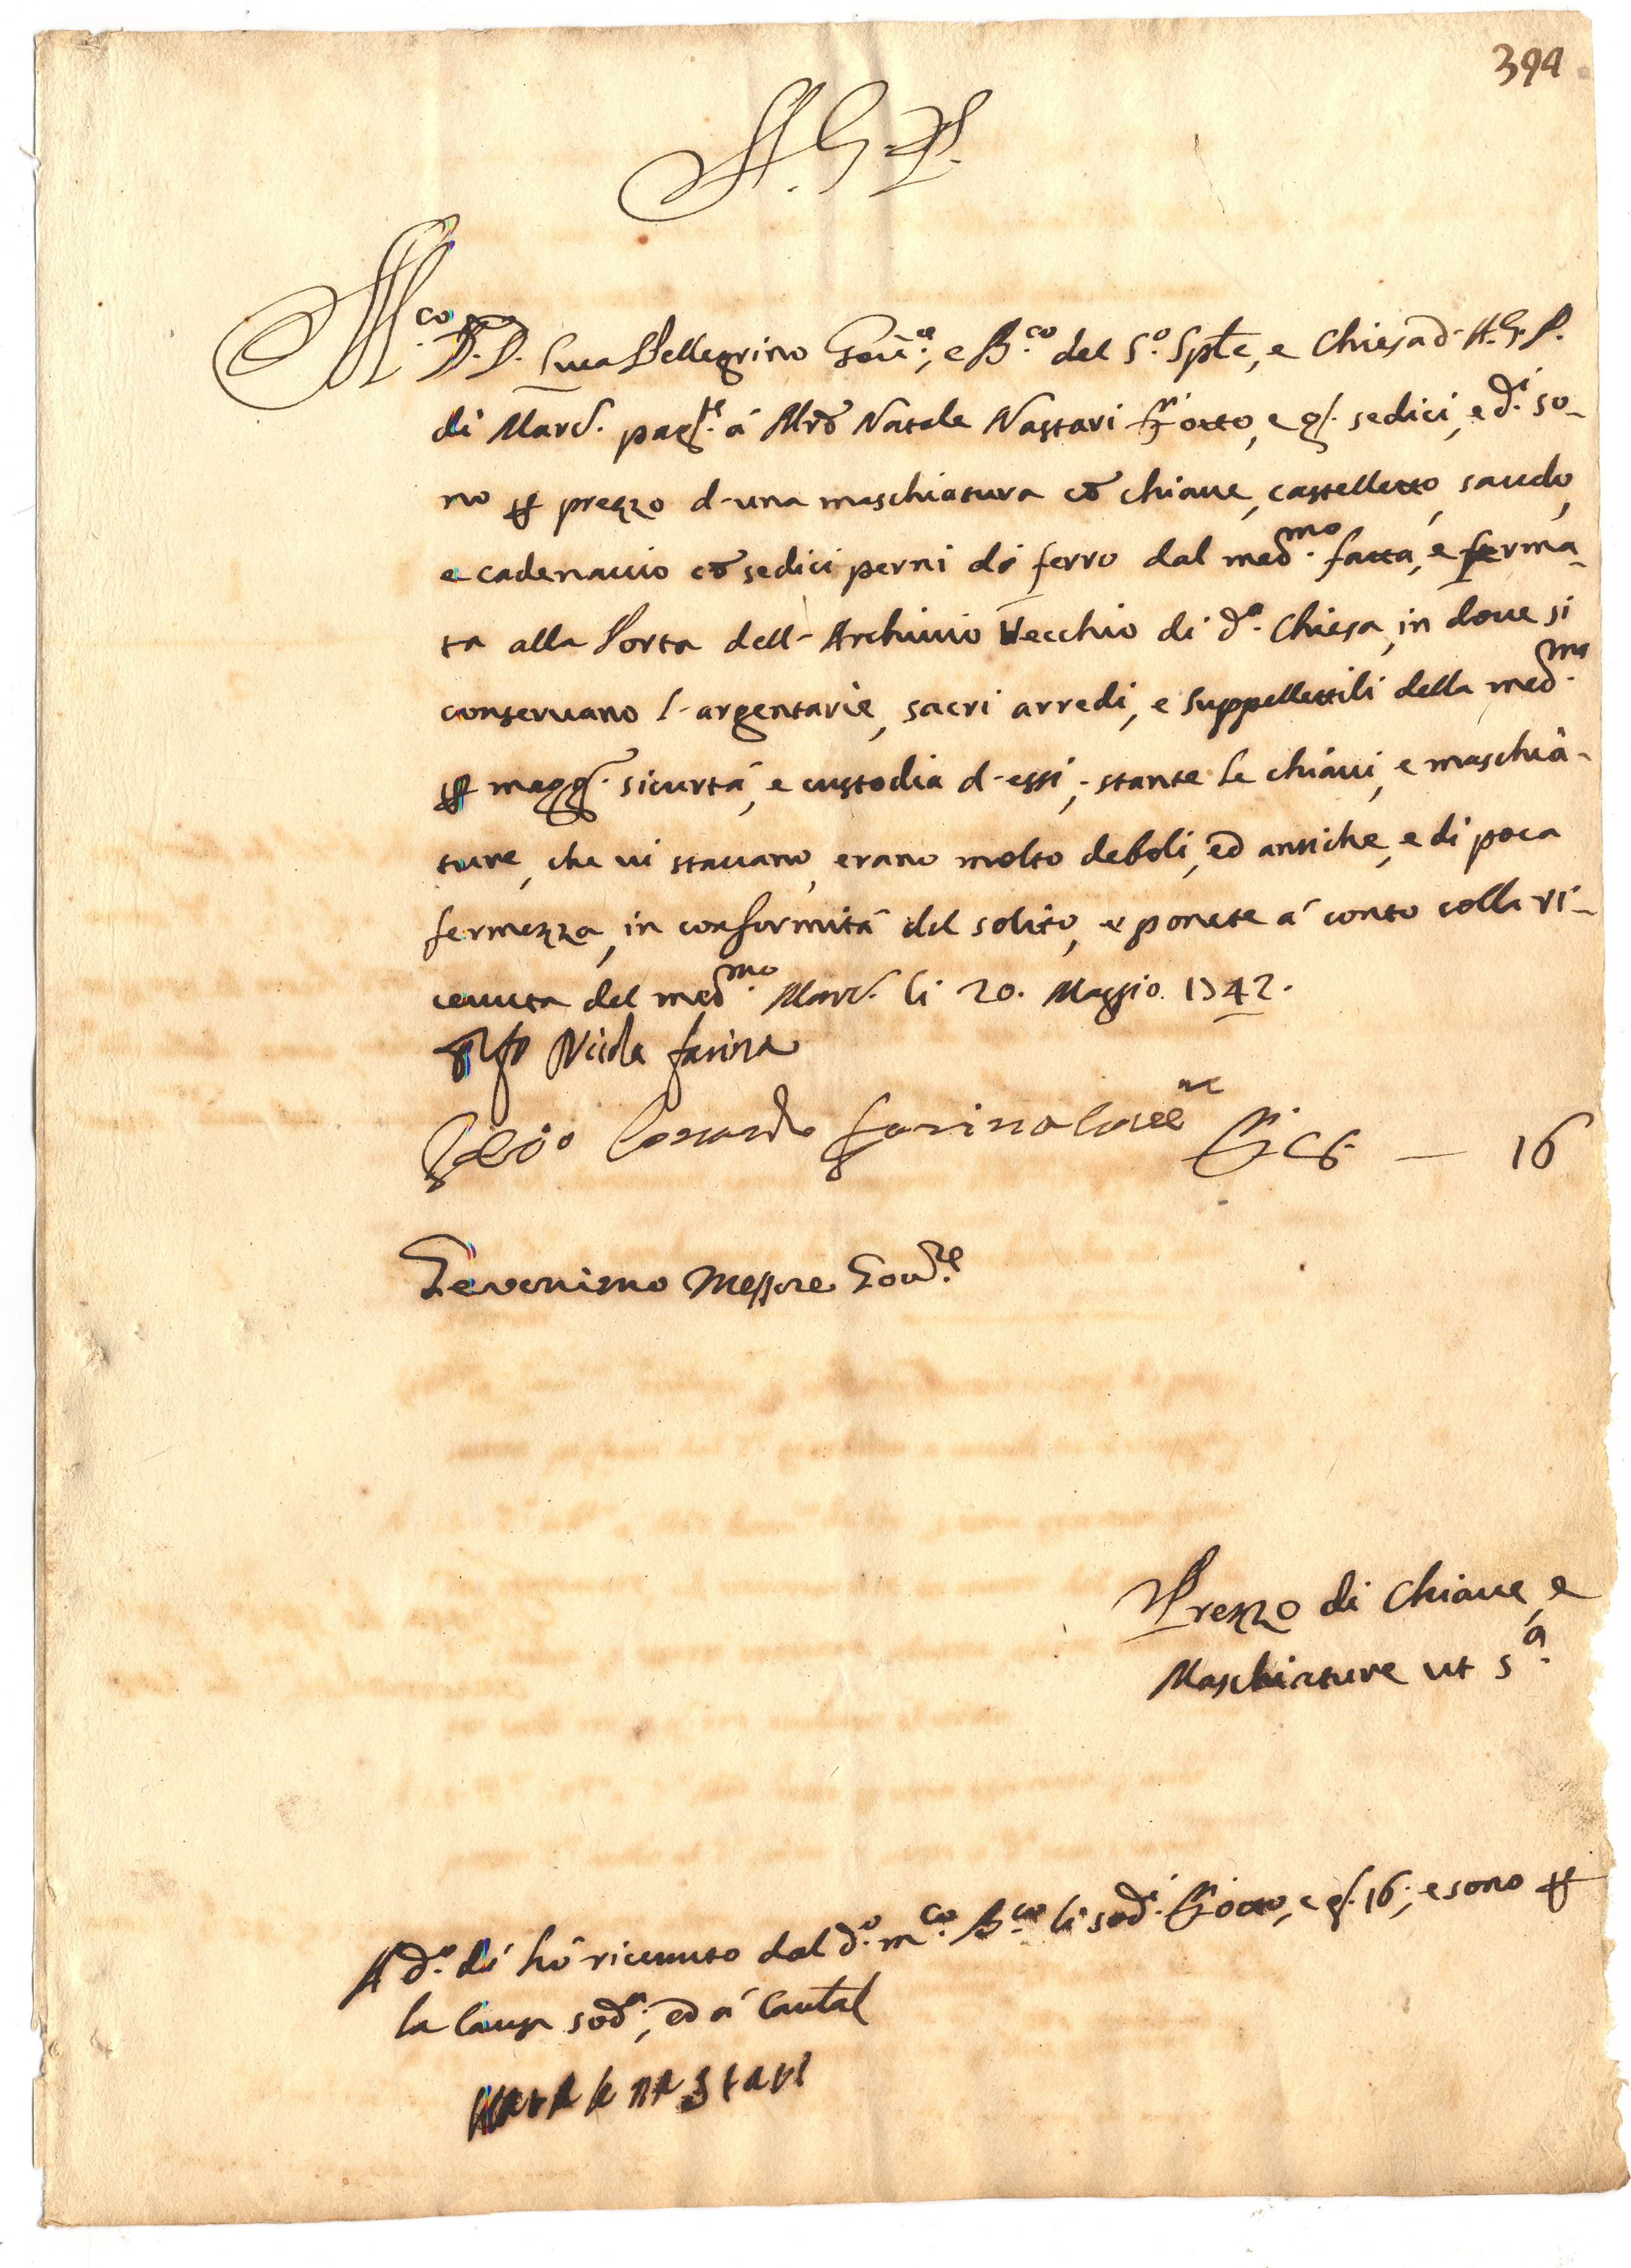 394
A. G. P.
M.co D. D. Luca Pellegrino Gov.re, e B.co del S.o Sple, e Chiesa d. A. G. P.
di Marc. pag.te á Mrõ Natale Nastari d.ti otto, e g. sedici, e d.i so-
no p prezzo d-una maschiatura cõ chiaue, castelletto, scudo,
e cadenaccio cõ sedici perni di ferro dal med.mo fatta, e ferma-
ta alla Porta dell-Archiuio Vecchio di d.a Chiesa, in doue si
conseruano l-argentarie, sacri arredi, e suppellettili della med.ma
p magg. sicurtá, e custodia d-essi, stante le chiaui, e maschia-
ture, che ui stauano, erano molto deboli, ed antiche, e di poca
fermezza, in conformitá del solito, e ponete á conto colla ri-
ceuuta del med.mo Marc. li 20. Maggio 1742.
Nicola farina
farina
16
Geronimo Messore Gou.re
Prezzo di Chiaue, e
Maschiature ut s.a
A d.o dí hó riceuuto dal d.o m.co B.co li sod.i d.ti otto, e g. 16; e sono p
la causa sod.a, ed á Cautel
nastari